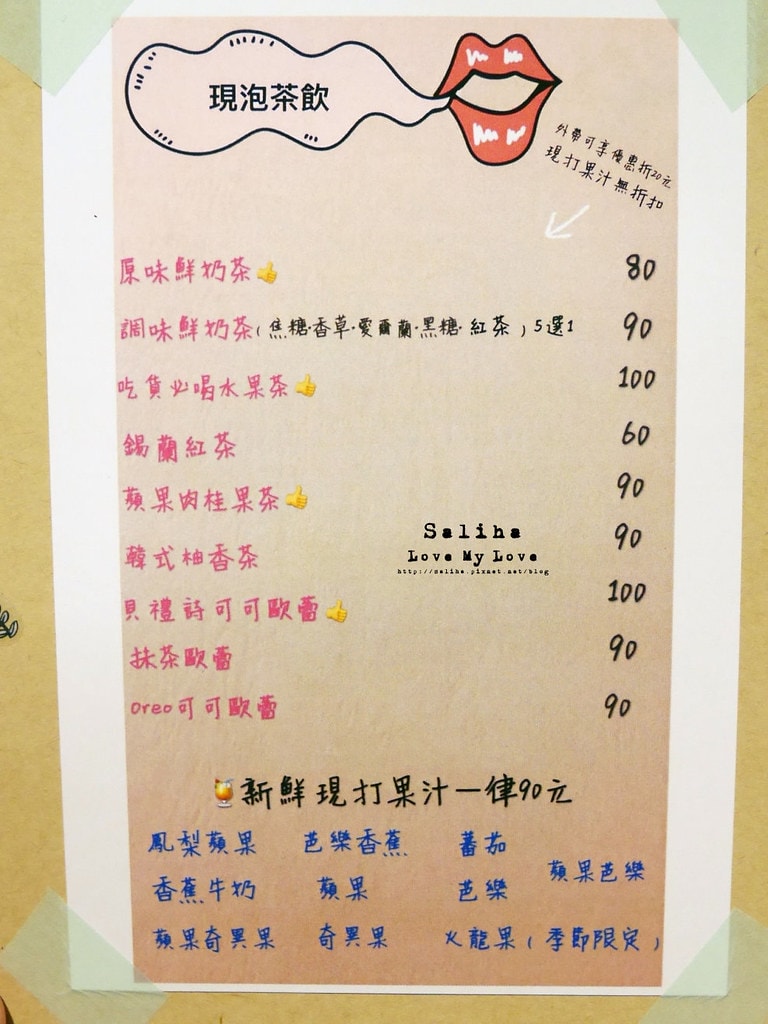 現泡茶飲
外帶可享優惠折20元
現打果汁無折扣
原味鮮奶茶 80
調味鮮奶茶(焦糖·香草·愛爾蘭·黑糖·紅茶)5選1 90
吃貨必喝水果茶 100
錫蘭紅茶 60
蘋果肉桂果茶 90
韓式柚香茶 90
貝禮詩可可歐蕾 100
抹茶歐蕾 90
oreo可可歐蕾 90
Saliha
Love My Love
http://saliha.pixnet.net/blog
新鮮現打果汁一律90元
鳳梨蘋果 芭樂香蕉 蕃茄
蘋果芭樂
香蕉牛奶 蘋果 芭樂
蘋果奇異果 奇異果 火龍果(季節限定)